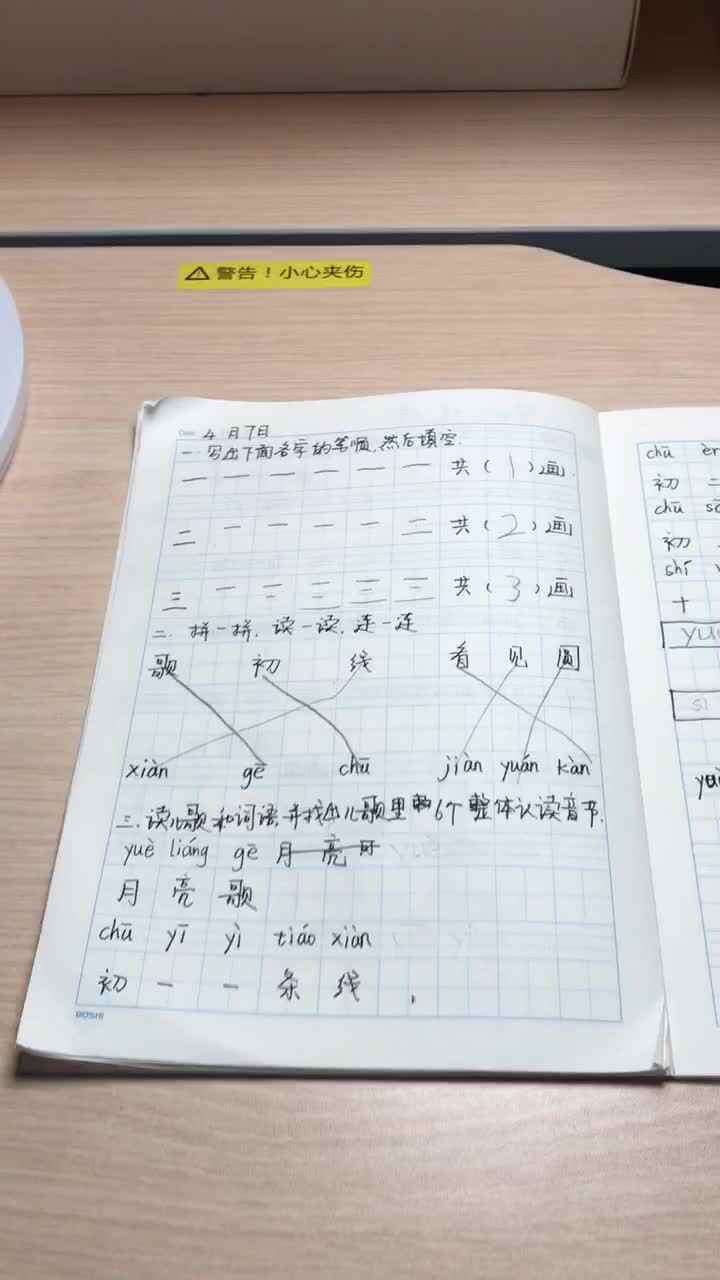 警告！小心夹伤
Date 4月7日
一.写出下面各字的笔顺,然后填空.
一 一 一 一 一 一 共(1)画.
二 一 一 一 一 二 共(2)画
三 一 二 三 三 三 共(3)画
二.拼一拼,读一读,连一连
歌 初 线 看 见 圆
xiàn gē chū jiàn yuán kàn
三.读儿歌和词语,并找出儿歌里的6个整体认读音节.
yuè liáng gē 月 亮
月 亮 歌
chū yī yì tiáo xiàn
初 一 一 条 线 ,
BOSHI
chū èr
初 二
chū
初
shí
十
yuè
si
yuè